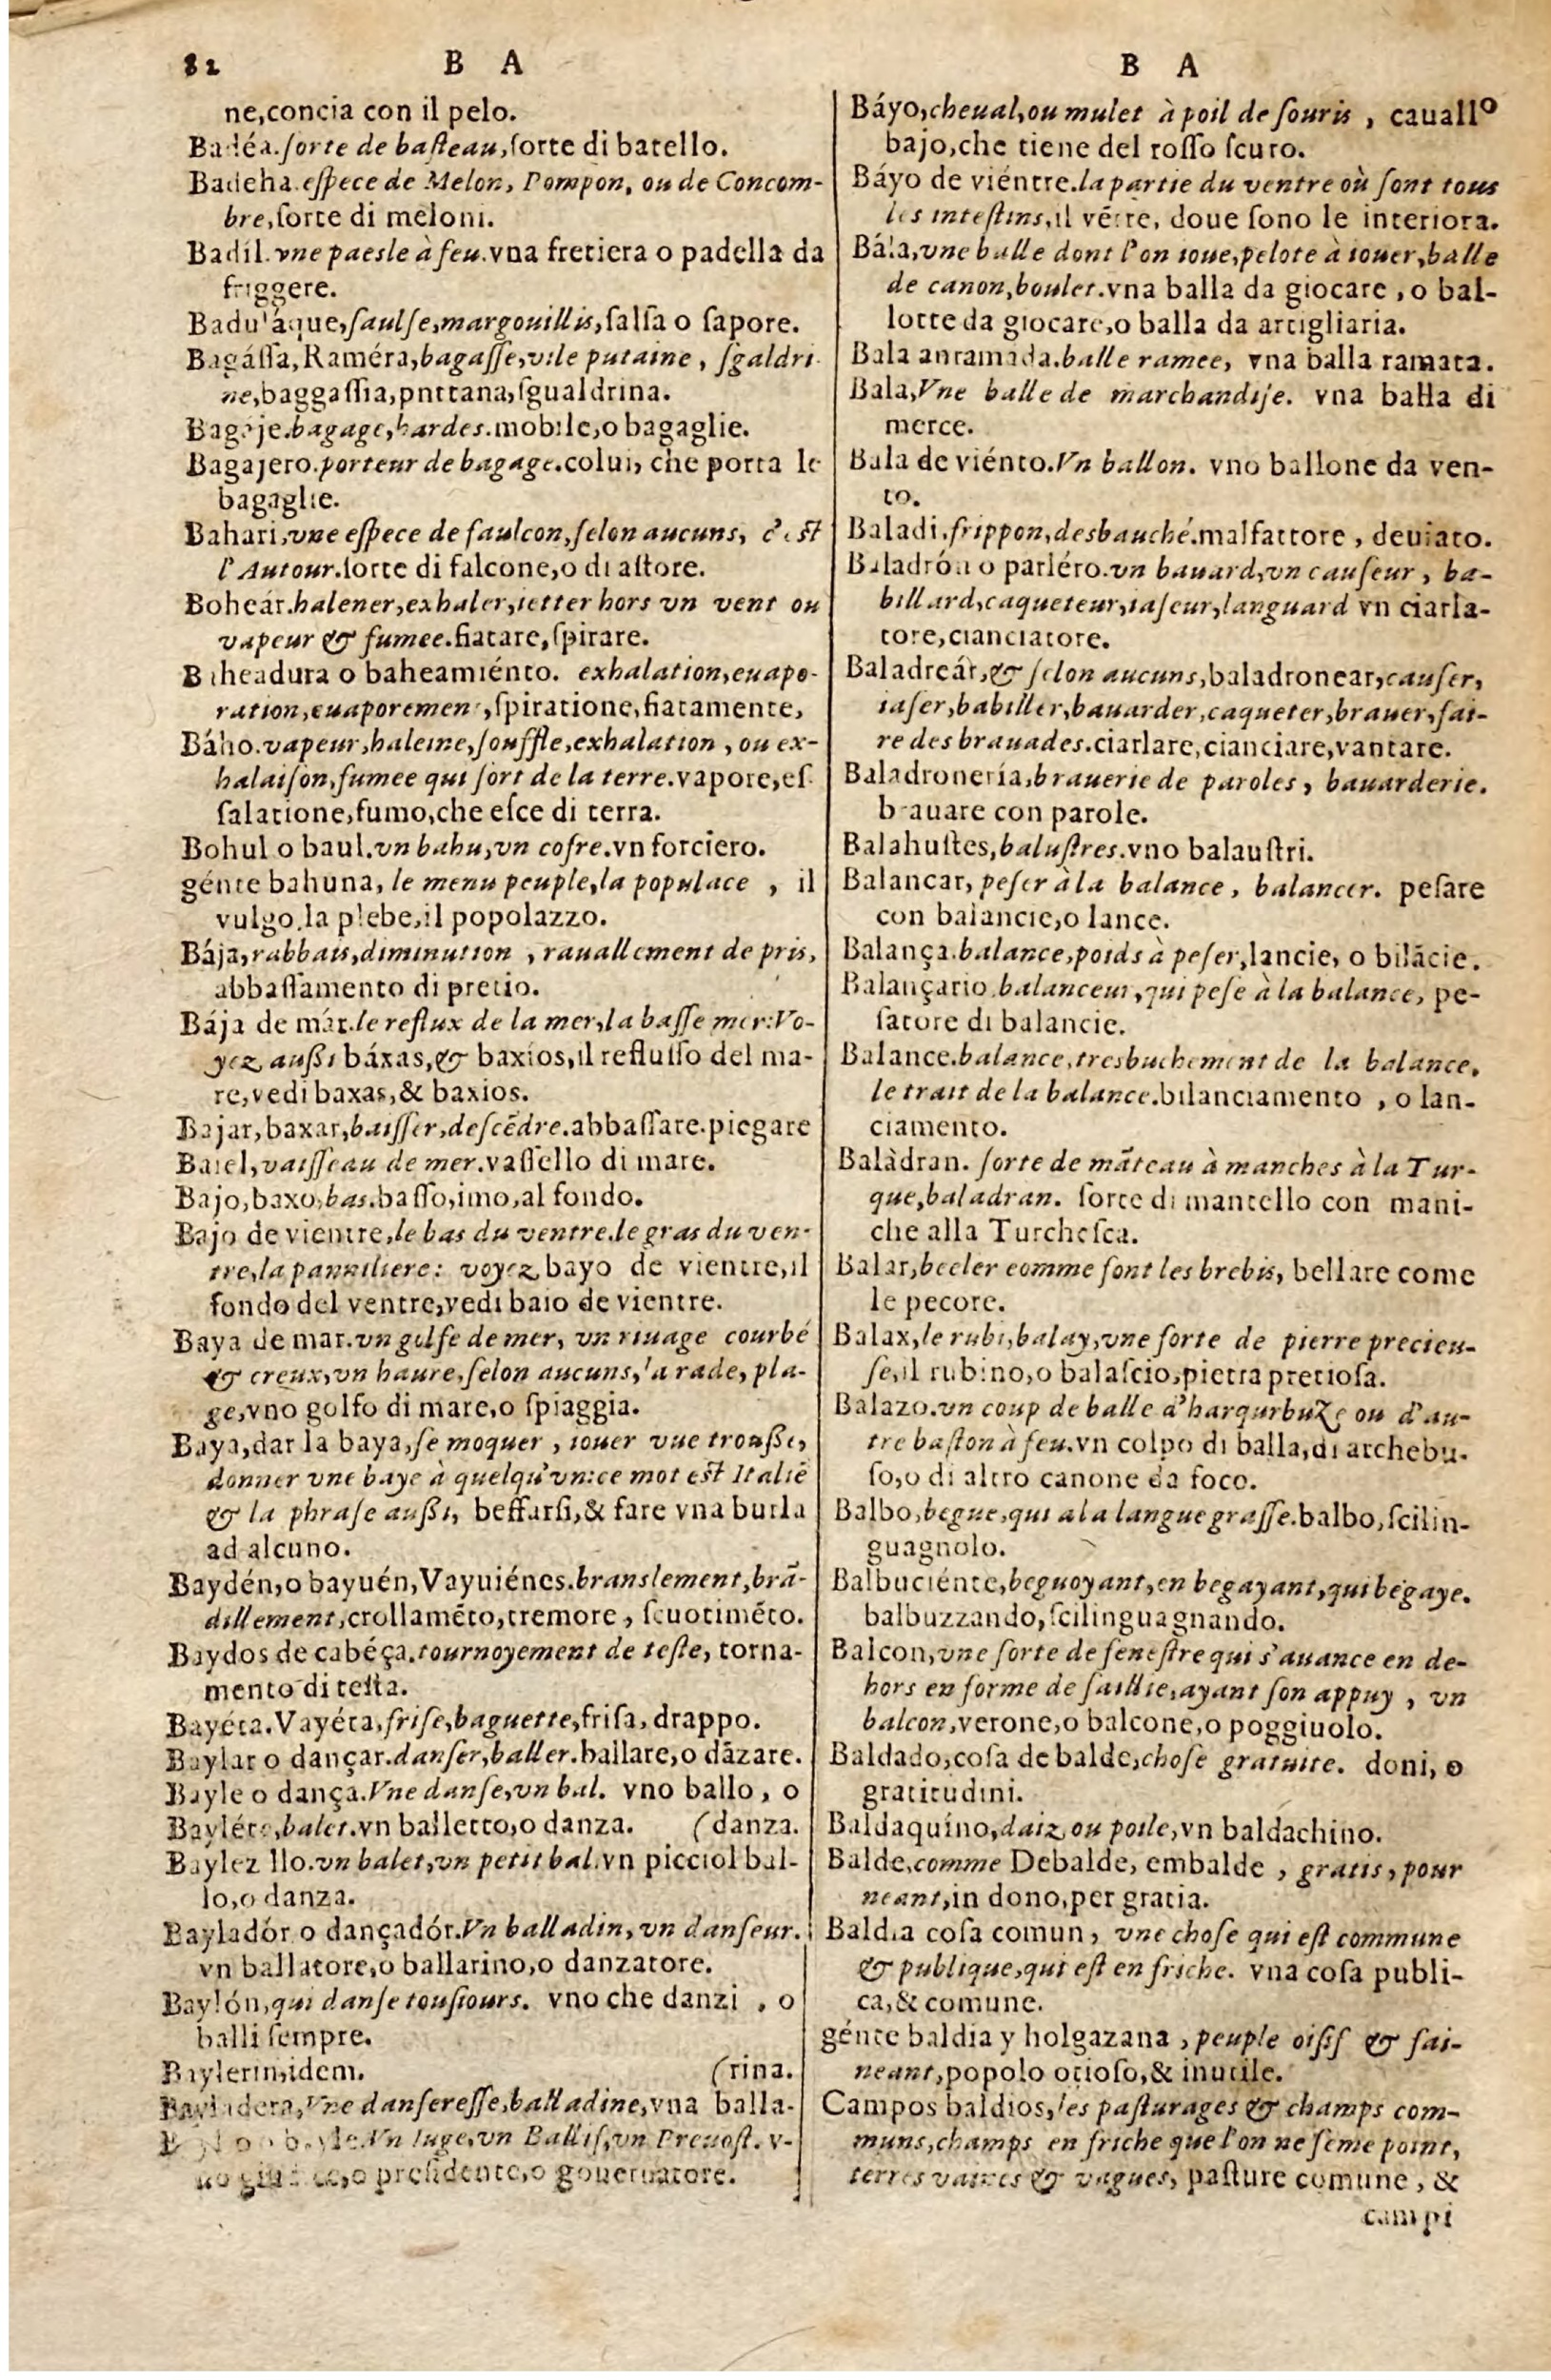 82 B A
ne,concia con il pelo.
Badéa.ſorte de baſteau,ſorte di batello.
Badeha.eſpece de Melon, Pompon, ou de Concom-
bre,ſorte di meloni.
Badil.vne paesle à feu.vna fretiera o padella da
friggere.
Badulaque,ſaulſe,margouillis,ſalſa o ſapore.
Bagáſſa,Raméra,bagaſſe,vile putaine, ſgaldri-
ne,baggaſſia,pnttana,ſgualdrina.
Bagaje.bagage,hardes.mobile,o bagaglie.
Bagajero.porteur de bagage.colui, che porta le
bagaglie.
Bahari,vne eſpece de faulcon,ſelon aucuns, c'eſt
l'Autour.ſorte di falcone,o di aſtore.
Boheár.halener,exhaler,ietter hors vn vent ou
vapeur & fumee.fiatare,ſpirare.
Baheadura o baheamiénto. exhalation,euapo-
ration,euaporement,ſpiratione,fiatamente,
Báho.vapeur,haleine,ſouffle,exhalation, ou ex-
halaiſon,fumee qui ſort de la terre.vapore,eſ-
ſalatione,fumo,che eſce di terra.
Bohul o baul.vn bahu,vn cofre.vn forciero.
génte bahuna, le menu peuple,la populace, il
vulgo,la plebe,il popolazzo.
Bája,rabbais,diminution, rauallement de pris,
abbaſſamento di pretio.
Bája de már.le reflux de la mer,la baſſe mer:Vo-
yez auſſi báxas,& baxíos,il refluſſo del ma-
re,vedi baxas,& baxios.
Bajar,baxar,baiſſer,deſcẽdre.abbaſſare.piegare
Baiel,vaiſſeau de mer.vaſſello di mare.
Bajo,baxo,bas.baſſo,imo,al fondo.
Bajo de vientre,le bas du ventre.le gras du ven-
tre,la panniliere: voyez bayo de vientre,il
fondo del ventre,vedi baio de vientre.
Baya de mar.vn golfe de mer, vn riuage courbé
& creux,vn haure,ſelon aucuns,la rade, pla-
ge,vno golfo di mare,o ſpiaggia.
Baya,dar la baya,ſe moquer, iouer vue trouſſe,
donner vne baye à quelqu'vn:ce mot eſt Italiẽ
& la phraſe auſſi, beffarſi,& fare vna burla
ad alcuno.
Baydén,o bayuén,Vayuiénes.branslement,brã-
dillement,crollamẽto,tremore, ſcuotimẽto.
Baydos de cabéça.tournoyement de teſte, torna-
mento di teſta.
Bayéta.Vayéta,friſe,baguette,friſa, drappo.
Baylar o dançar.danſer,baller.ballare,o dãzare.
Bayle o dança.Vne danſe,vn bal. vno ballo, o
Bayléte,balet.vn balletto,o danza. (danza.
Baylez llo.vn balet,vn petit bal.vn picciol bal-
lo,o danza.
Bayladór o dançadór.Vn balladin, vn danſeur.
vn ballatore,o ballarino,o danzatore.
Baylón,qui danſe touſiours. vno che danzi, o
balli ſempre.
Baylerin,idem. (rina.
Bayladera,Vne danſereſſe,balladine,vna balla-
Vn Iuge,vn Ballif,vn Preuoſt. v-
no giudice,o preſidente,o gouernatore.
B A
Báyo,cheual,ou mulet à poil de ſouris, cauallo
bajo,che tiene del roſſo ſcuro.
Báyo de viéntre.la partie du ventre où ſont tous
les inteſtins,il vẽtre, doue ſono le interiora.
Bála,vne balle dont l'on ioue,pelote à iouer,balle
de canon,boulet.vna balla da giocare, o bal-
lotte da giocare,o balla da artigliaria.
Bala anramada.balle ramee, vna balla ramata.
Bala,Vne balle de marchandiſe. vna balla di
merce.
Bala de viénto.Vn ballon. vno ballone da ven-
to.
Baladi.frippon,desbauché.malfattore, deuiato.
Baladrón o parléro.vn bauard,vn cauſeur, ba-
billard,caqueteur,iaſeur,languard vn ciarla-
tore,cianciatore.
Baladreár,& ſelon aucuns,baladronear,cauſer,
iaſer,babiller,bauarder,caqueter,brauer,fai-
re des brauades.ciarlare,cianciare,vantare.
Baladronería,brauerie de paroles, bauarderie.
brauare con parole.
Balahuſtes,baluſtres.vno balauſtri.
Balancar, peſer à la balance, balancer. peſare
con balancie,o lance.
Balança.balance,poids à peſer,lancie, o bilãcie.
Balançario.balanceur,qui peſe à la balance, pe-
ſatore di balancie.
Balance.balance,tresbuchement de la balance.
le trait de la balance.bilanciamento, o lan-
ciamento.
Balàdran. ſorte de mãteau à manches à la Tur-
que,baladran. ſorte di mantello con mani-
che alla Turcheſca.
Balar,beeler eomme ſont les brebis, bellare come
le pecore.
Balax,le rubi,balay,vne ſorte de pierre precieu-
ſe,il rubino,o balaſcio,pietra pretioſa.
Balazo.vn coup de balle d'harqurbuze ou d'au-
tre baſton à feu.vn colpo di balla,di archebu-
ſo,o di altro canone da foco.
Balbo,begue,qui a la langue graſſe.balbo,ſcilin-
guagnolo.
Balbuciénte,beguoyant,en begayant,qui begaye.
balbuzzando,ſcilinguagnando.
Balcon,vne ſorte de feneſtre qui s'auance en de-
hors en forme de ſaillie,ayant ſon appuy, vn
balcon,verone,o balcone,o poggiuolo.
Baldado,coſa de balde,choſe gratuite. doni, o
gratitudini.
Baldaquíno,daiz ou poile,vn baldachino.
Balde,comme Debalde, embalde, gratis, pour
neant,in dono,per gratia.
Baldia coſa comun, vne choſe qui eſt commune
& publique,qui eſt en friche. vna coſa publi-
ca,& comune.
génte baldia y holgazana, peuple oiſif & fai-
neant,popolo otioſo,& inutile.
Campos baldios,les paſturages & champs com-
muns,champs en friche que l'on ne ſeme point,
terres vaines & vagues, paſture comune, &
campi